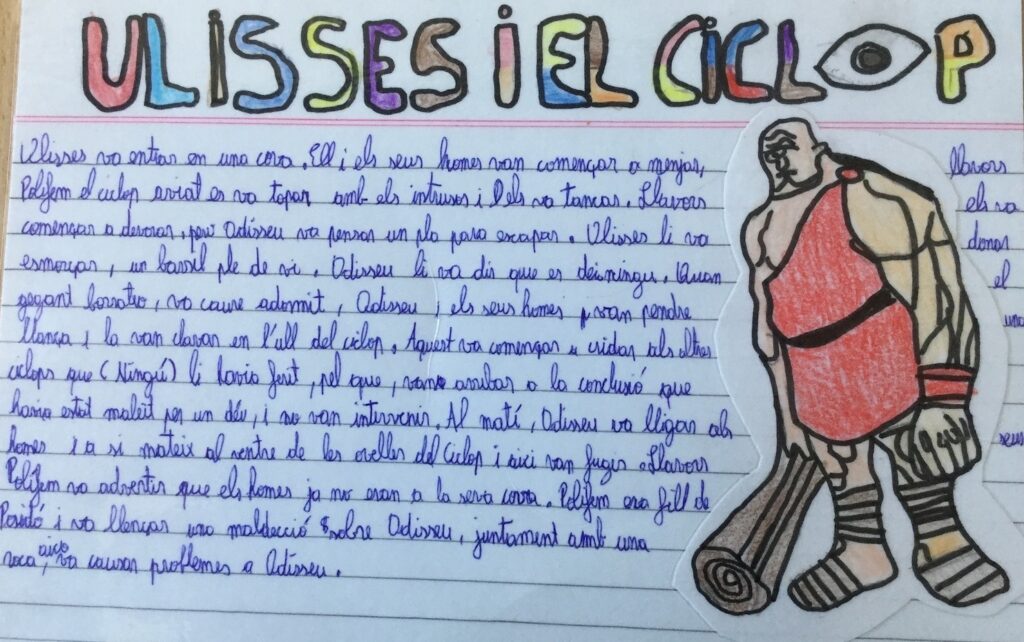 ULISSES I EL CICLOP
Ulisses va entrar en una cova. Ell i els seus homes van començar a menjar, llavors
Polifem el ciclop aviat es va topar amb els intrusos i els va tancar. Llavors els va
començar a devorar, però Odisseu va pensar un pla para escapar. Ulisses li va donar
esmorçar, un barril ple de vi. Odisseu li va dir que es deia ningu. Quan el
gegant borratxo, va caure adormit, Odisseu i els seus homes van pendre una
llança i la van clavar en l'ull del ciclop. Aquest va començar a cridar als altres
ciclops que (Ningú) li havia ferit, pel que, van arribar a la conclusió que
havia estat maleït per un déu, i no van intervenir. Al matí, Odisseu va lligar als seus
homes i a si mateix al ventre de les ovelles del Ciclop i aixi van fugir. Llavors
Polifem va advertir que els homes ja no eran a la seva cova. Polifem era fill de
Posidó i va llençar una maldecció sobre Odisseu, juntament amb una
roca, aixo va causar problemes a Odisseu.